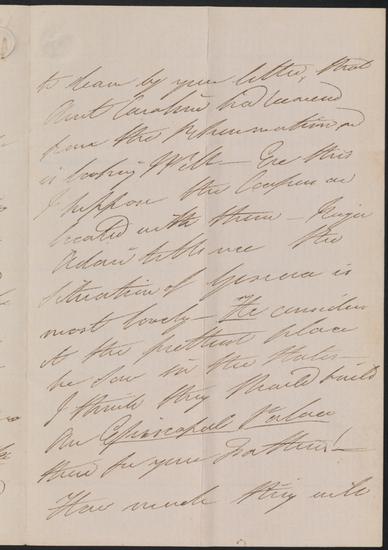 to hear by your letter, that
Aunt Caroline had recovered
from the Rheumatism and
is looking well - Ere this
I suppose the Coopers are
located with them -
Adair tells me the
situation of Geneva is
most lovely - He considers
it the prettiest place
he saw in the States -
I think they should build
an Episcopal Palace
there for your Father! -
How much they will